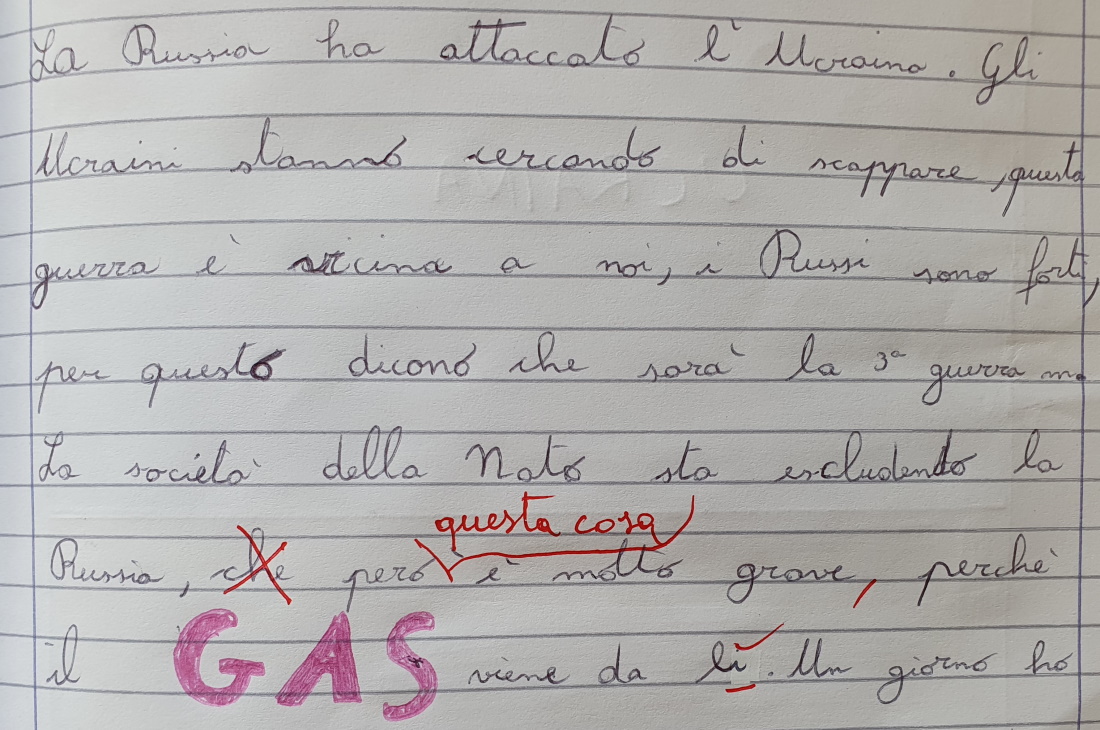 La Russia ha attaccato l'Ucraina. Gli
Ucraini stanno cercando di scappare, questa
guerra è vicina a noi, i Russi sono forti,
per questo dicono che sarà la 3ª guerra mo
La società della Nato sta escludendo la
questa cosa
Russia, che però è molto grave, perchè
il GAS viene da lì. Un giorno ho